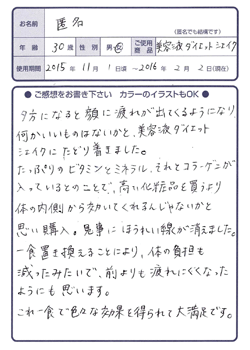 お名前 匿名
(匿名でも結構です)
年齢 30歳 性別 男・女 ご使用商品 美容液ダイエットシェイク
使用期間 2015年 11月 1日頃 ~ 2016年 2月 2日(現在)
●ご感想をお書き下さい カラーのイラストもOK●
夕方になると顔に疲れが出てくるようになり
何かいいものはないかと、美容液ダイエット
シェイクにたどり着きました。
たっぷりのビタミンとミネラル、それとコラーゲンが
入っているとのことで、高い化粧品を買うより
体の内側から効いてくれるんじゃないかと
思い購入。見事にほうれい線が消えました。
一食置き換えることにより、体の負担も
減ったみたいで、前よりも疲れにくくなった
ようにも思います。
これ一食で色々な効果を得られて大満足です。